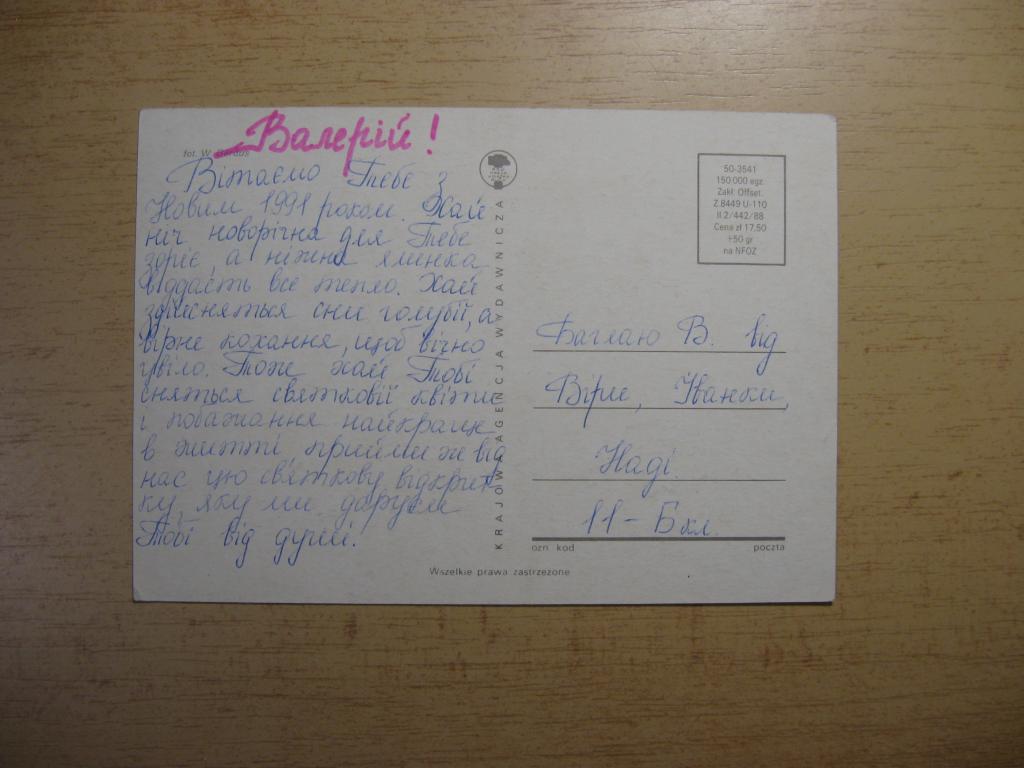 Валерій!
fot. W.
Вітаємо Тебе з
Новим 1991 роком. Хай
ніч новорічна для Тебе
зоріє, а ніжна ялинка
віддасть все тепло. Хай
здійсняться сни голубії, а
вірне кохання, щоб вічно
цвіло. Тож хай Тобі
сняться святковії квіти
і побажання найкращі
в житті, прийми ж від
нас цю святкову відкрит-
ку, яку ми даруєм
Тобі від душі!
KRAJOWA AGENCJA WYDAWNICZA
50-3541
150.000 egz.
Zakł. Offset.
Z.8449 U-110
II 2/442/88
Cena zł 17,50
+50 gr
na NFOZ
Баглаю В. від
Віри, Іванки,
Наді.
11-Б кл.
ozn. kod
poczta
Wszelkie prawa zastrzeżone